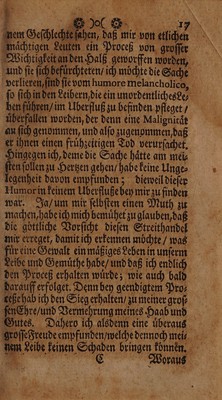 17
nem Geschlechte sahen, daß mir von etlichen
mächtigen Leuten ein Proceß von grosser
Wichtigkeit an den Halß geworffen worden,
und sie sich befürchteten/ ich möchte die Sache
verlieren, sind sie vom humore melancholico,
so sich in den Leibern, die ein unordentliches Le-
ben führen/ im Uberfluß zu befinden pfleget/
überfallen worden, der denn eine Malignität
an sich genommen, und also zugenommen, daß
er ihnen einen frühzeitigen Tod verursachet.
Hingegen ich, deme die Sache hätte am mei-
sten sollen zu Hertzen gehen/ habe keine Unge-
legenheit davon empfunden: dieweil dieser
Humor in keinem Uberfluße bey mir zu finden
war. Ja/ um mir selbsten einen Muth zu
machen, habe ich mich bemühet zu glauben, daß
die göttliche Vorsicht diesen Streithandel
mir erreget, damit ich erkennen möchte/ was
für eine Gewalt ein mäßiges Leben in unserm
Leibe und Gemüthe habe/ und daß ich endlich
den Proceß erhalten würde; wie auch bald
darauff erfolget. Denn bey geendigtem Pro-
ceße hab ich den Sieg erhalten/ zu meiner gros-
sen Ehre/ und Vermehrung meines Haab und
Gutes. Dahero ich alsdenn eine überaus
grosse Freude empfunden/ welche dennoch mei-
nem Leibe keinen Schaden bringen können.
C Woraus